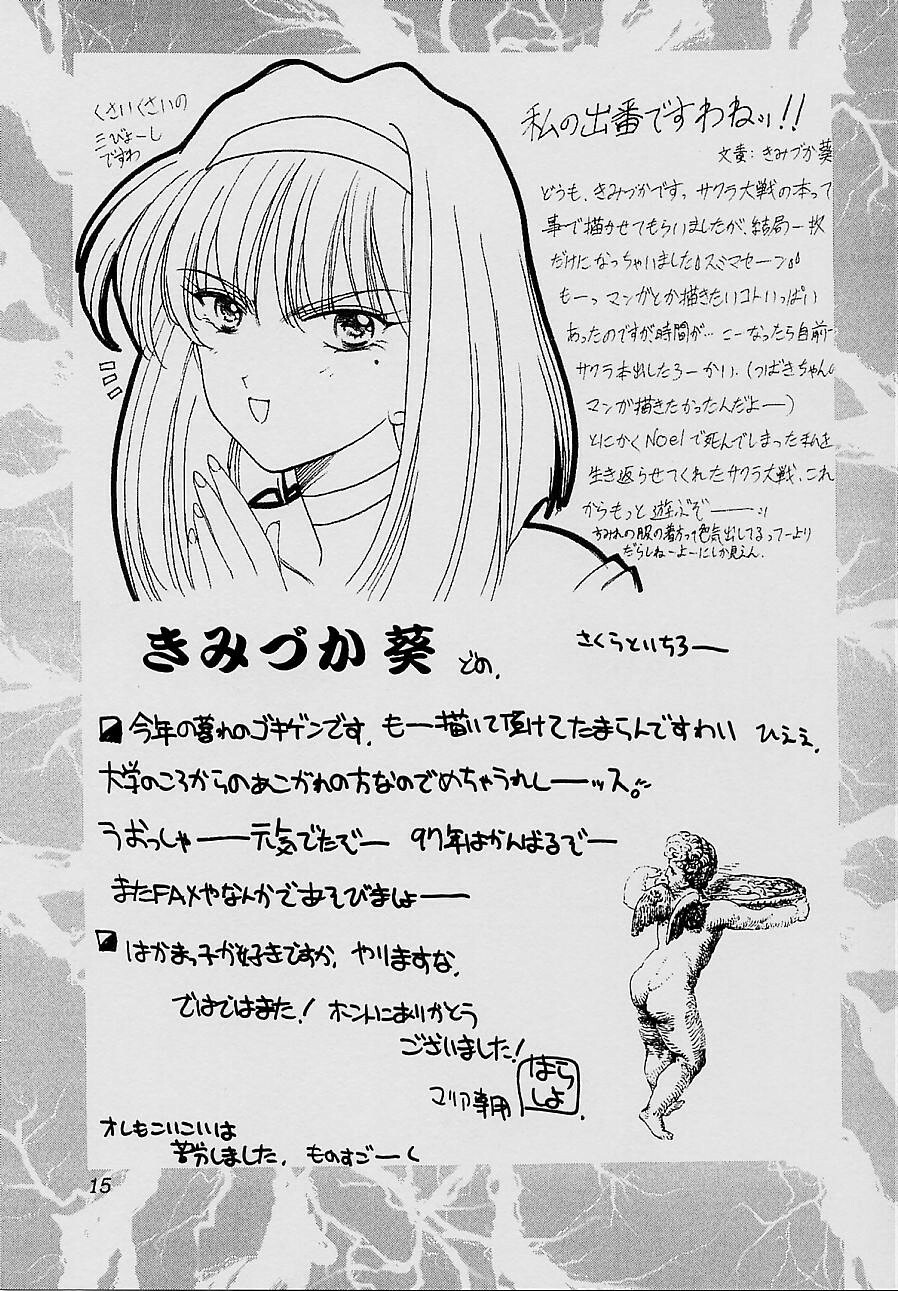 くさいくさいの
三びょーし
ですわ
私の出番ですわねッ!!
文責:きみづか葵
どうも、きみづかです。サクラ大戦の本って
事で描かせてもらいましたが、結局一枚
だけになっちゃいました。スミマセーン。
もーっマンガとか描きたいコトいっぱい
あったのですが、時間が… こーなったら自前で
サクラ本出したろーかい、(つばきちゃんの
マンガ描きたかったんだよー)
とにかくNoelで死んでしまった私を
生き返らせてくれたサクラ大戦、これ
からもっと遊ぶぞーーッ!
すみれの服の着方って色気出してるってーより
だらしねーよーにしか見えん.
きみづか 葵 どの.
さくらといちろー
今年の暮れのゴキゲンです. もー描いて頂けてたまらんですわい ひぇぇ.
大学のころからのあこがれの方なのでめちゃうれしーーッス。
うおっしゃーー元気でたぞー 97年はがんばるぞー
またFAXやなんかであそびましょーー
はかまっ子が好きですか. やりますな.
ではではまた! ホントにありがとう
ございました!
マリア専用 はらしょ.
オレもこいこいは
苦労しました. ものすごーく
15